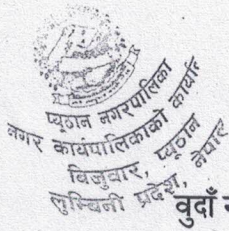 प्यूठान नगरपालिका
नगर कार्यपालिकाको कार्या
बिजुवार, प्यूठान
लुम्बिनी प्रदेश, नेपाल
वुदाँ न